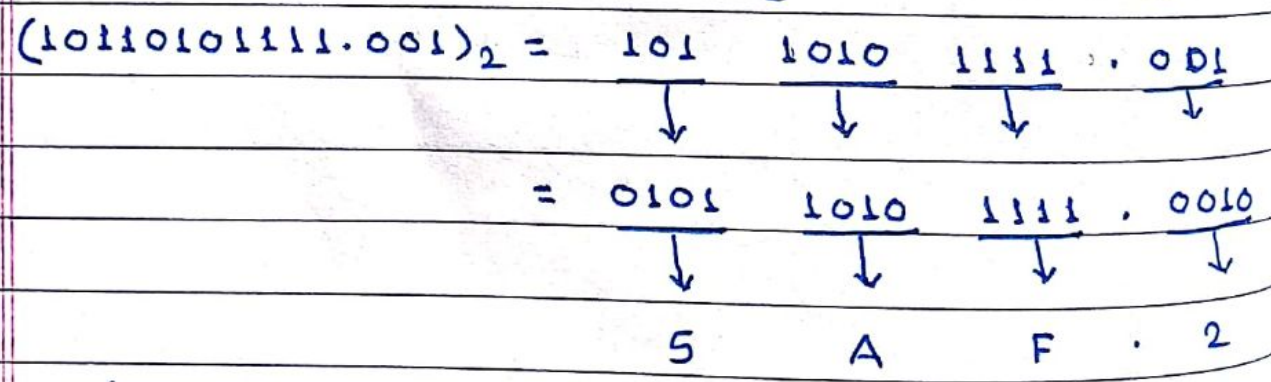 (10110101111.001)₂ = 101 1010 1111 . 001
= 0101 1010 1111 . 0010
5 A F . 2